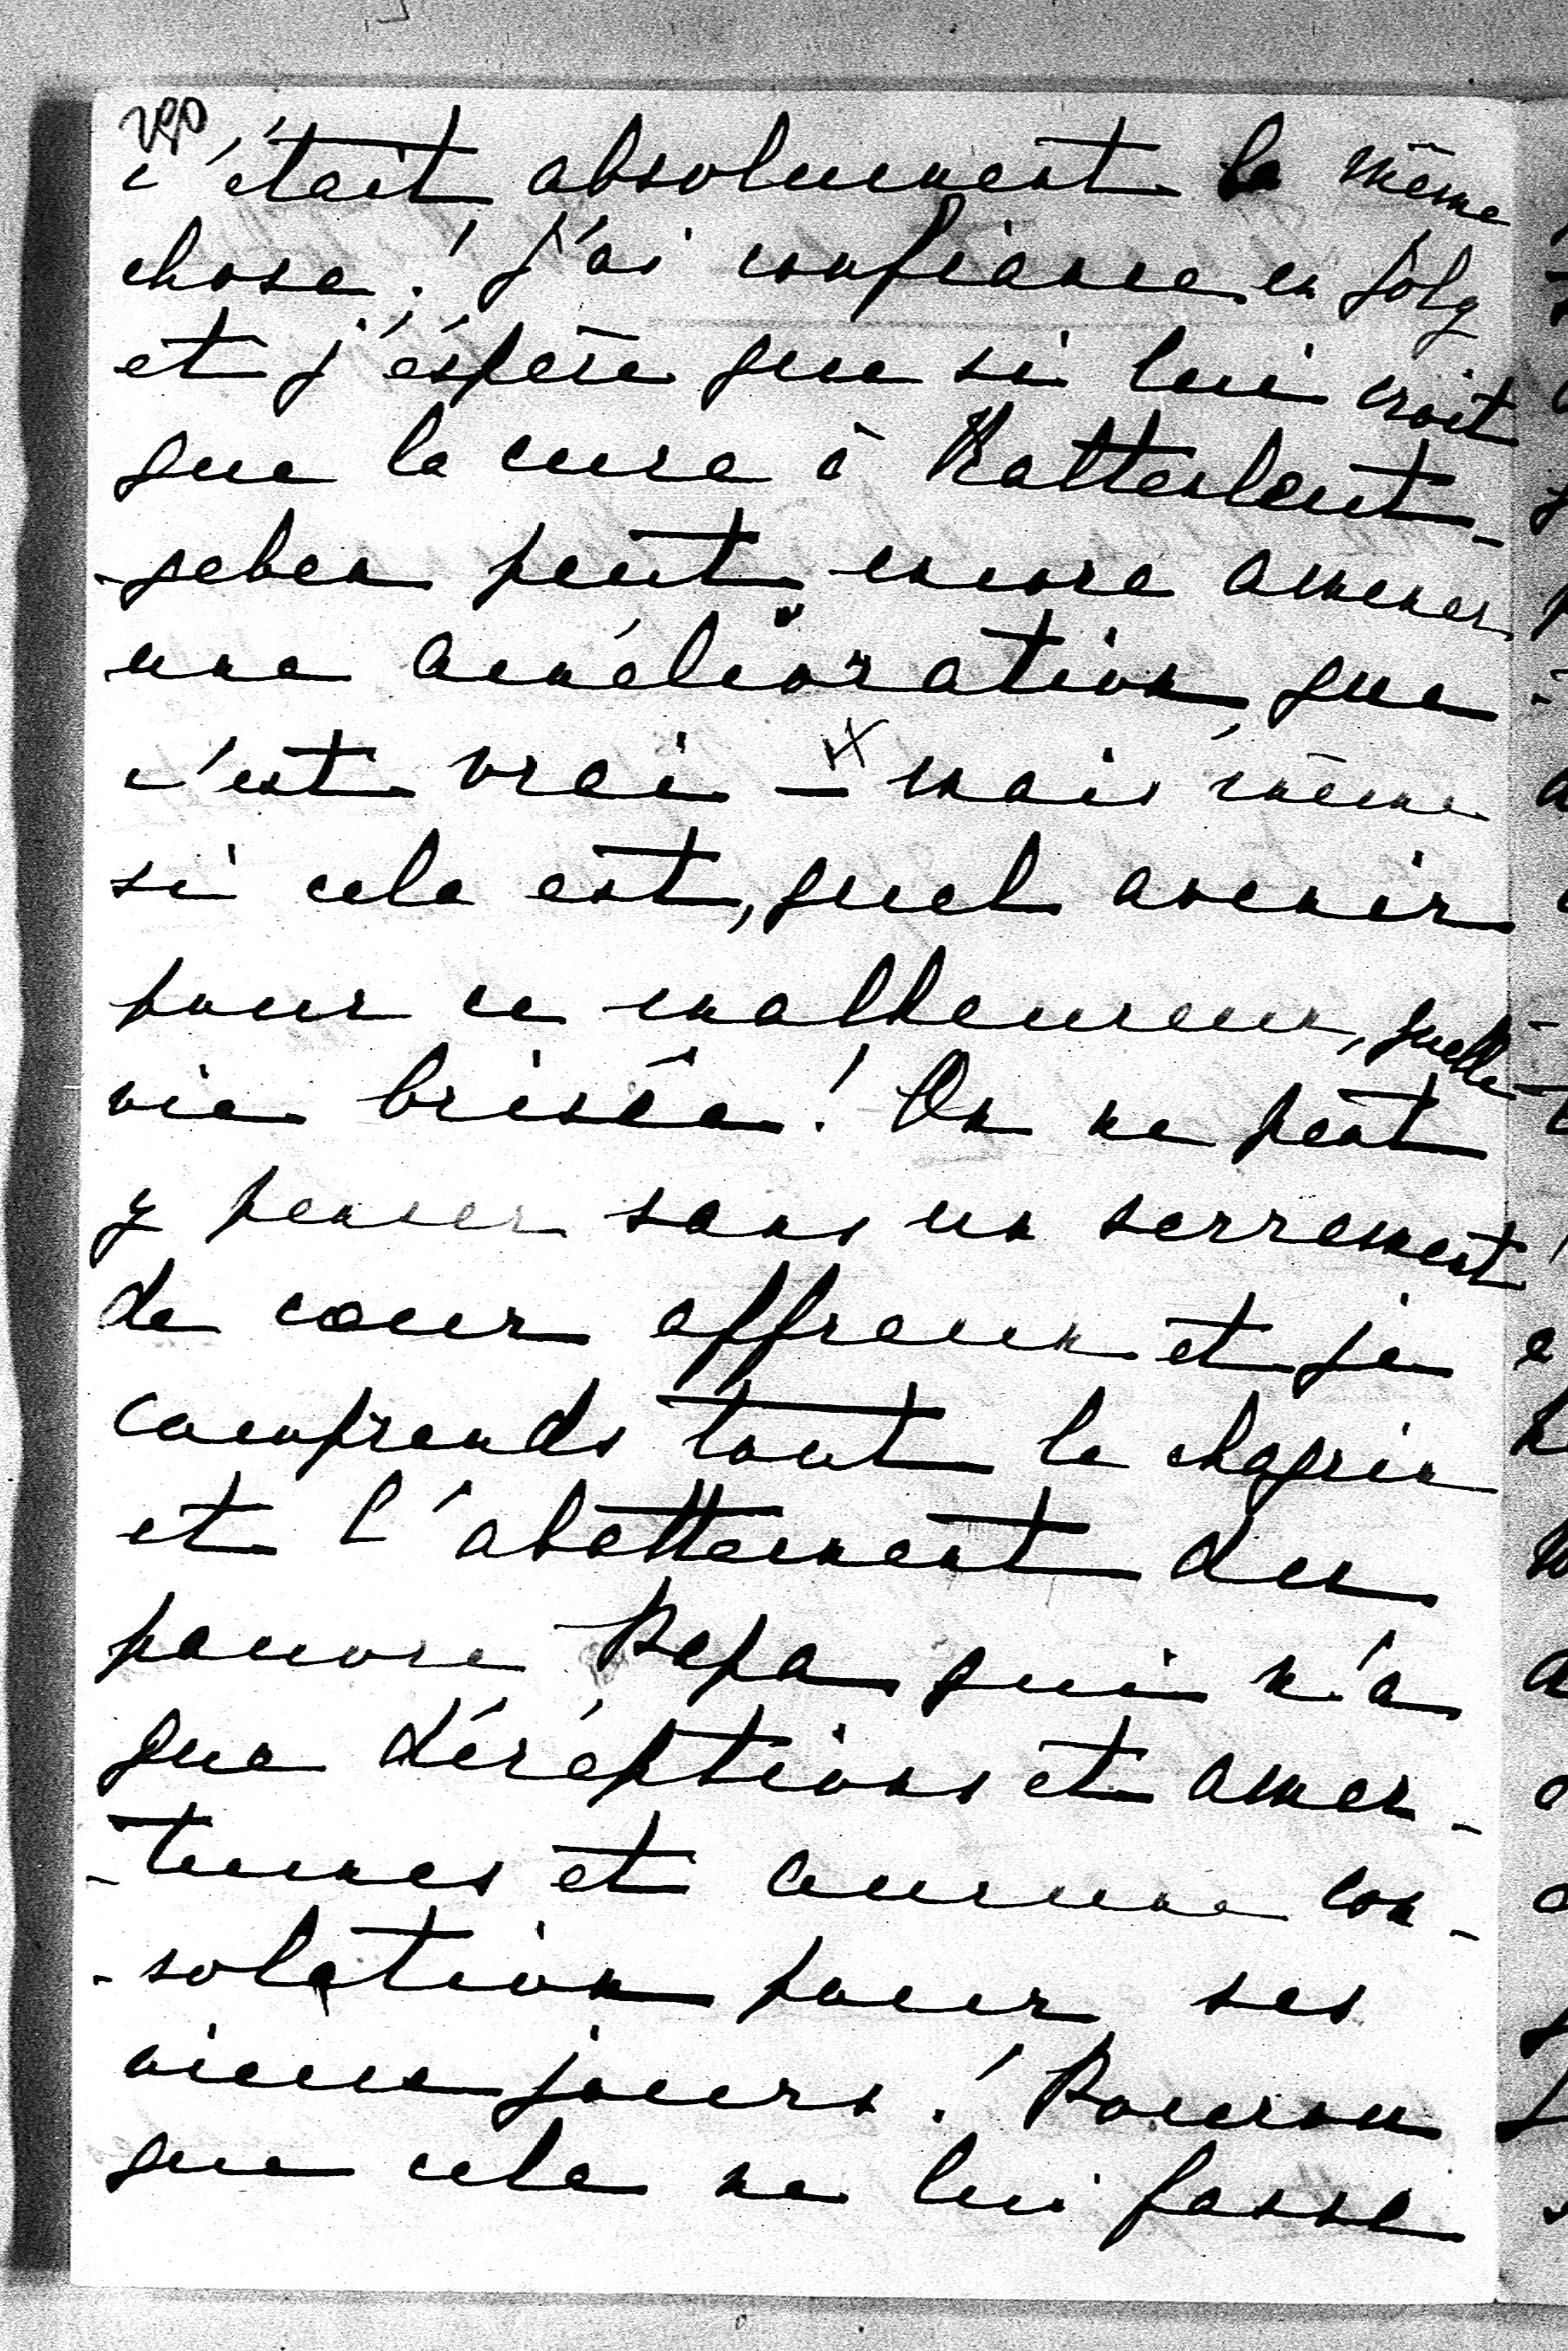 290
c'était absolument la même
chose! J'ai confiance en Jolg
et j'éspère que si lui croit
que la cure à Kattenleut-
-geben peut encore amener
une amélioration, que
c'est vrai – mais même
si cela est, quel avenir
pour ce malheureux, quelle
vie brisée! On ne peut
y penser sans un serrement
de coeur affreux et je
comprends tout le chagrin
et l'abattement du
pauvre Papa qui n'a
que décéptions et amer-
-tumes et aucune con-
-solation pour ses
vieux jours! Pourvu
que cela ne lui fasse